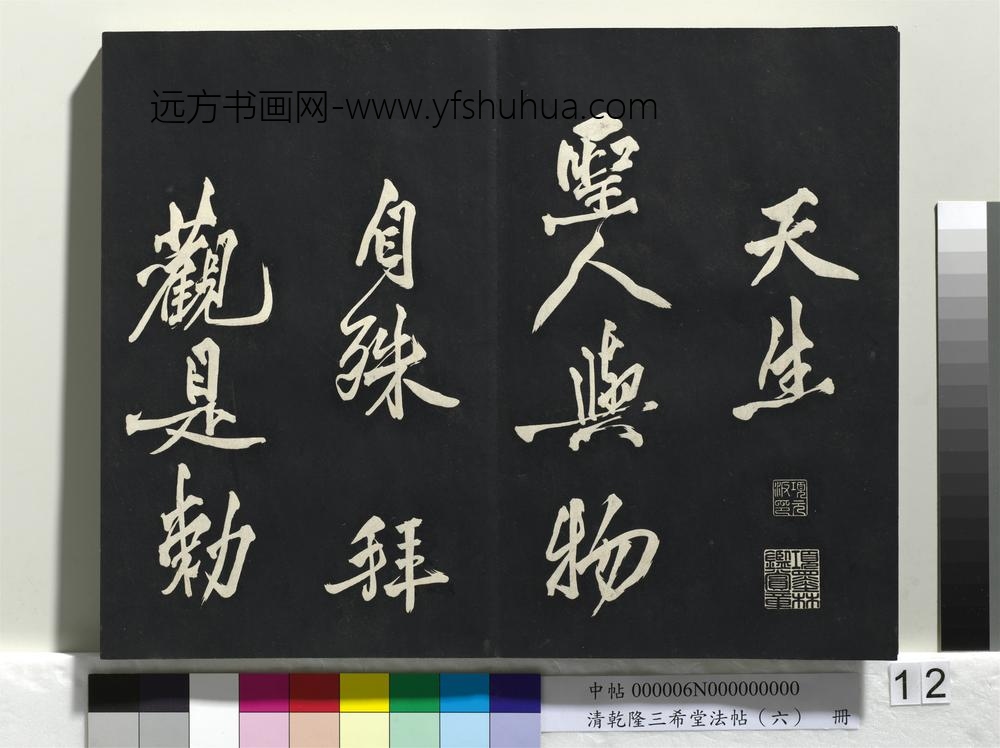 远方书画网-www.yfshuhua.com
天生
聖人與物
自殊拜
觀是勅
項元汴印
項墨林鑑賞章
中帖 000006N000000000
清乾隆三希堂法帖（六） 冊
12